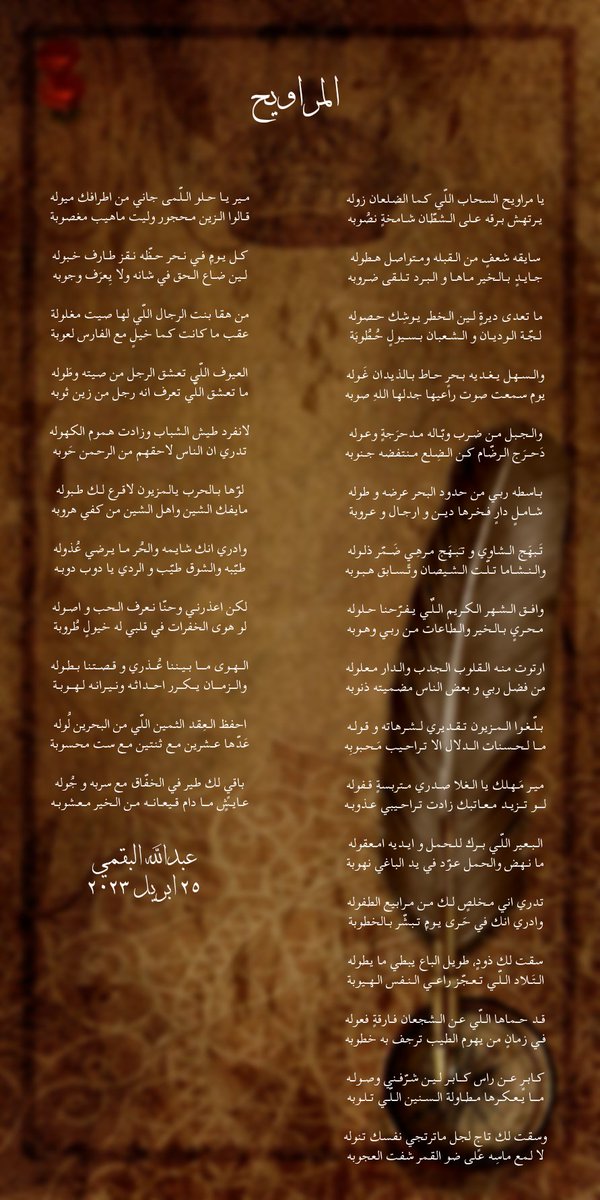 المراويح
يا مراويح السحاب اللّي كما الضلعان زوله
يرتهش برقه على الشطّان شامخةٍ نصُوبه
سايقه شعفٍ من القبله ومتواصل هطوله
جايدٍ بالخير ماها و البرد تلقى ضروبه
ما تعدى ديرةٍ لين الخطر يوشك حصوله
لجّة الوديان و الشعبان بسيولٍ حُطُوبَة
والسهل يغديه بحرٍ حاط بالذيدان غَوله
يوم سمعت صوت راعيها جدلها اللهِ صوبه
والجبل من ضرب وبّاله مدحرَجةٍ وعوله
دَحرَج الرضّام كن الضِلع منتفضه جنوبه
بامطه ربي من حدود البحر عرضه و طوله
شاملٍ دارٍ فخرها دين و ارجال و عروبة
تَبهَج الشاوي و تبهَج مرهي ضمّر ذلوله
والنشاما تلّت الشيصان وتسابق هبوبه
وافق الشهر الكريم اللّي يفرّحنا حلوله
محريٍ بالخير والطاعات من ربي وهوبه
ارتوت منه القلوب الجدب والدار معلوله
من فضل ربي و بعض الناس مضميته ذنوبه
بلّغوا المزيون تقديري لشرهاته و قوله
ما لحسنات الدلال الا تراحيب محبوبه
مير مَهلك يا الغلا صدري متربسةٍ قفوله
لو تزيد معاتبك زادت تراحيبي عذوبه
البعير اللّي برك للحمل و ايديه امعقوله
ما نهض والحمل عوّد في يد الباغي نهوبة
تدري اني مخلصٍ لك من مرابيع الطفوله
وادري انك في حَرى يومٍ تبشّر بالخطوبة
سقت لك ذودٍ، طويل الباع يبطي ما يطوله
التلاد اللّي تعجّز راعي النفس الهيوبة
قد حماها اللّي عن الشجعان فارقةٍ فعوله
في زمانٍ من يهوم الطيب ترجف به خطوبه
كابرٍ عن راس كابر لين شرّفني وصوله
ما يعكرها مطاولة السنين اللّي تلوبه
وسقت لك تاجٍ لجل ماترتجي نفسك تنوله
لا لمع ماسه على ضو القمر شفت العجوبه
مير يا حلو اللّمى جاني من اطرافك ميوله
قالوا الزين محجور وليت ماهيب مغصوبة
كل يومٍ في نحر حظّه نقز طارف خبوله
لين ضاع الحق في شانه ولا يعرَف وجوبه
من هقا بنت الرجال اللّي لها صيت مغلولة
عقب ما كانت كما خيلٍ مع الفارس لعوبة
العيوف اللّي تعشق الرجل من صيته وطَوله
ما تعشق اللّي تعرف انه رجل من زين ثوبه
لانفرد طيش الشباب وزادت هموم الكهوله
تدري ان الناس لاحقهم من الرحمن حَوبه
لوّها بالحرب يالمزيون لاقرع لك طبوله
مايفك الشين واهل الشين من كفي هروبه
وادري انك شايمه والحُر ما يرضي عُذوله
طيّبه والشوق طيّب و الردي يا دوب دوبه
لكن اعذرني وحنّا نعرف الحب و اصوله
لو هوى الخفرات في قلبي له خيولٍ طُروبة
الهوى ما بيننا عُذري و قصتنا بطوله
والزمان يكرر احداثه ونيرانه لهوبة
احفظ العِقد الثمين اللّي من البحرين لُوله
عَدّها عشرين مع ثنتين مع ست محسوبة
باقي لك طير في الخفّاق مع سربه و جُوله
عايشٍ ما دام قيعانه من الخير معشوبه
عبدالله البقمي
٢٥ ابريل ٢٠٢٣